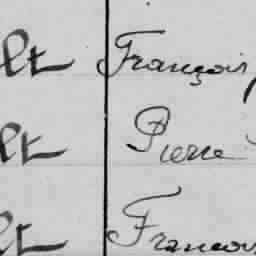 lt François
lt Pierre
lt François